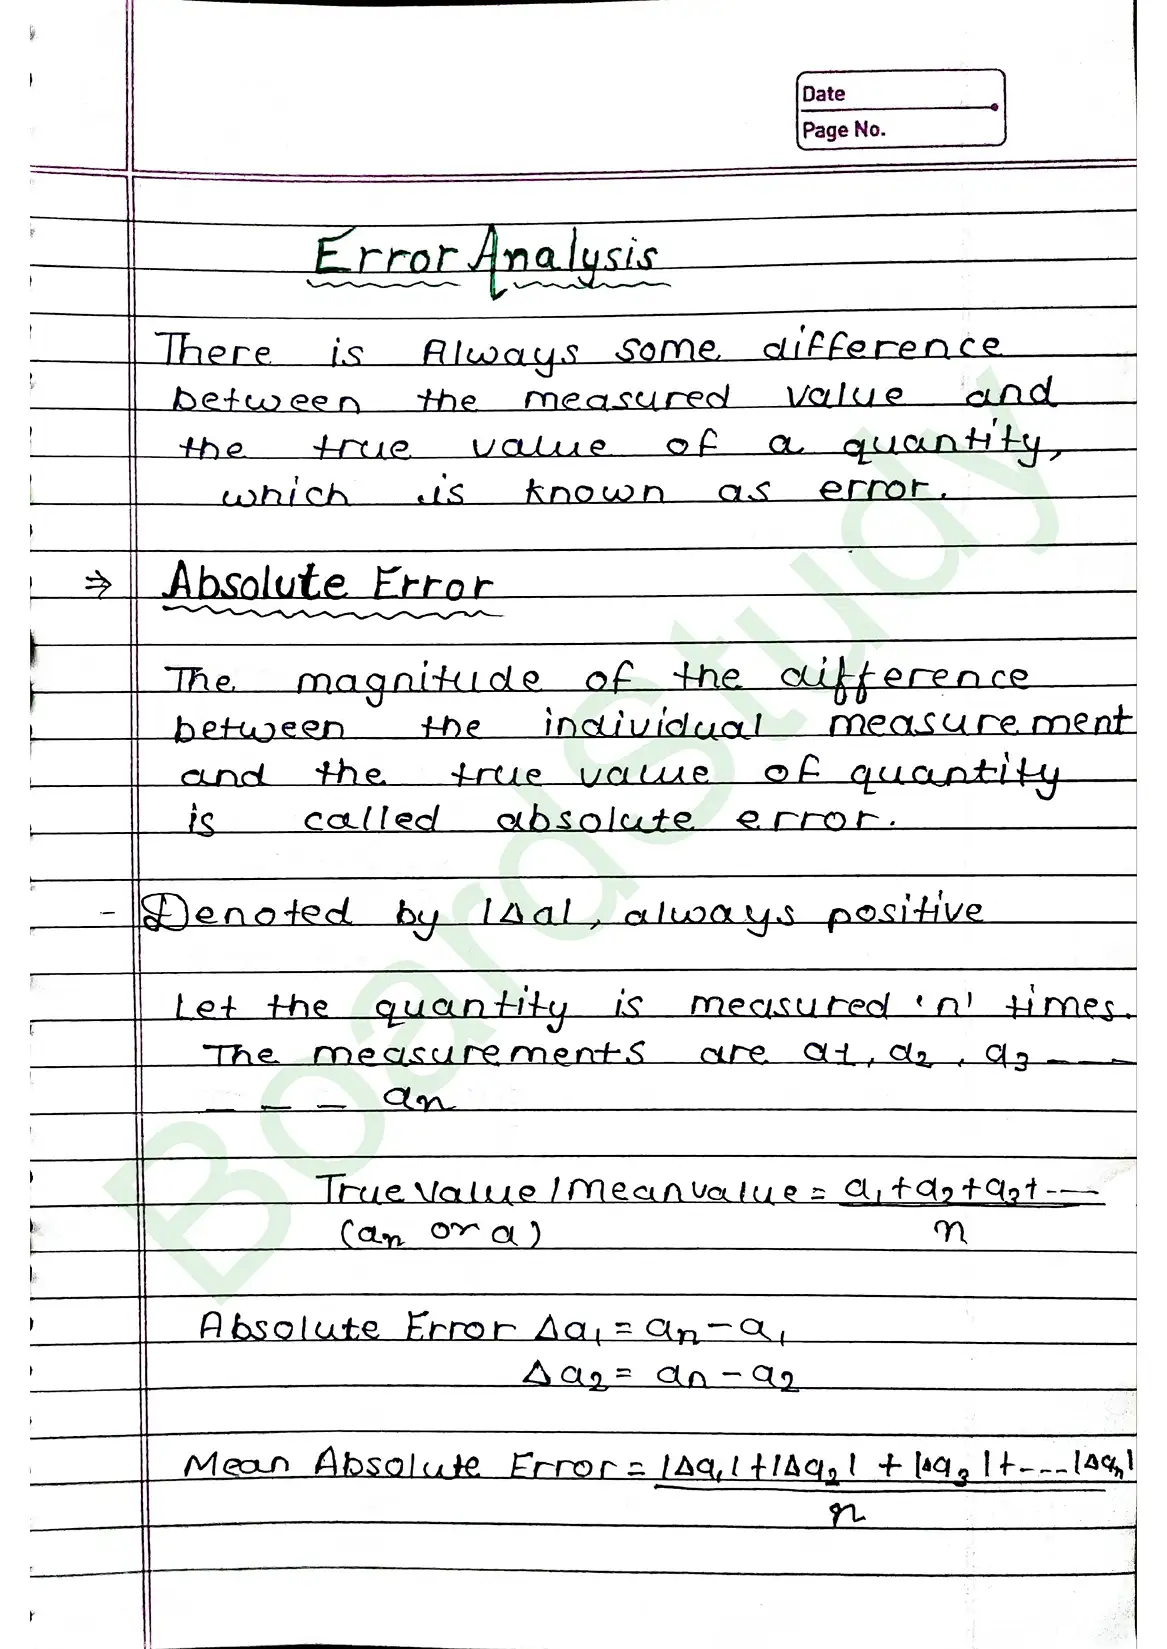 Date
Page No.
Error Analysis
There is Always some difference
between the measured value and
the true value of a quantity,
which is known as error.
⇒ Absolute Error
The magnitude of the difference
between the individual measurement
and the true value of quantity
is called absolute error.
- Denoted by |Δa|, always positive
Let the quantity is measured 'n' times.
The measurements are a1, a2, a3 ---
--- an
True Value / Mean value = a1+a2+a3+---
(am or a) n
Absolute Error Δa1 = am - a1
Δa2 = am - a2
Mean Absolute Error = |Δa1|+|Δa2| + |Δa3|+----|Δan|
n
Board Study